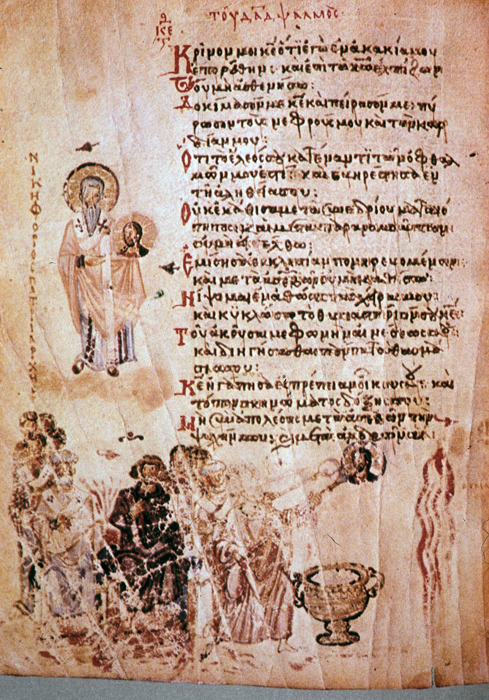 τοῦ δαδ ψαλμος
κε
Κρῖνόν μοι κε ὅτι ἐγὼ ἐν ἀκακία μου
ἐπορεύθην· καὶ ἐπὶ τῶ κω ἐλπίζων
οὐ μὴ ἀσθενήσω:
Δοκίμασόν με κε καὶ πείρασόν με· πύ
ρωσον τοὺς νεφρούς μου καὶ τὴν καρ
δίαν μου:
Ὅτι τὸ ἔλεός σου κατέναντι τῶν ὀφθαλ
μῶν μου ἐστί: καὶ εὐηρέστησα ἐν
τῆ ἀληθεία σου:
Οὐκ ἐκάθισα μετὰ συνεδρίου ματαιό
τητος καὶ μετὰ παρανομούντων
οὐ μὴ εἰσέλθω:
Ἐμίσησα ἐκκλησίαν πονηρευομένων·
καὶ μετὰ ἀσεβῶν οὐ μὴ καθίσω:
Νίψομαι ἐν ἀθώοις τὰς χεῖρας μου·
καὶ κυκλώσω τὸ θυσιαστήριόν σου κε:
Τοῦ ἀκοῦσαι με φωνῆς αἰνέσεώς σου
καὶ διηγήσασθαι πάντα τὰ θαυμά
σιά σου:
Κε ἠγάπησα εὐπρέπειαν οἴκου σου· καὶ
τόπον σκηνώματος δόξης σου:
Μὴ συναπολέσης μετὰ ἀσεβῶν τὴν
ψυχήν μου· καὶ μετὰ ἀνδρῶν
νικηφορος